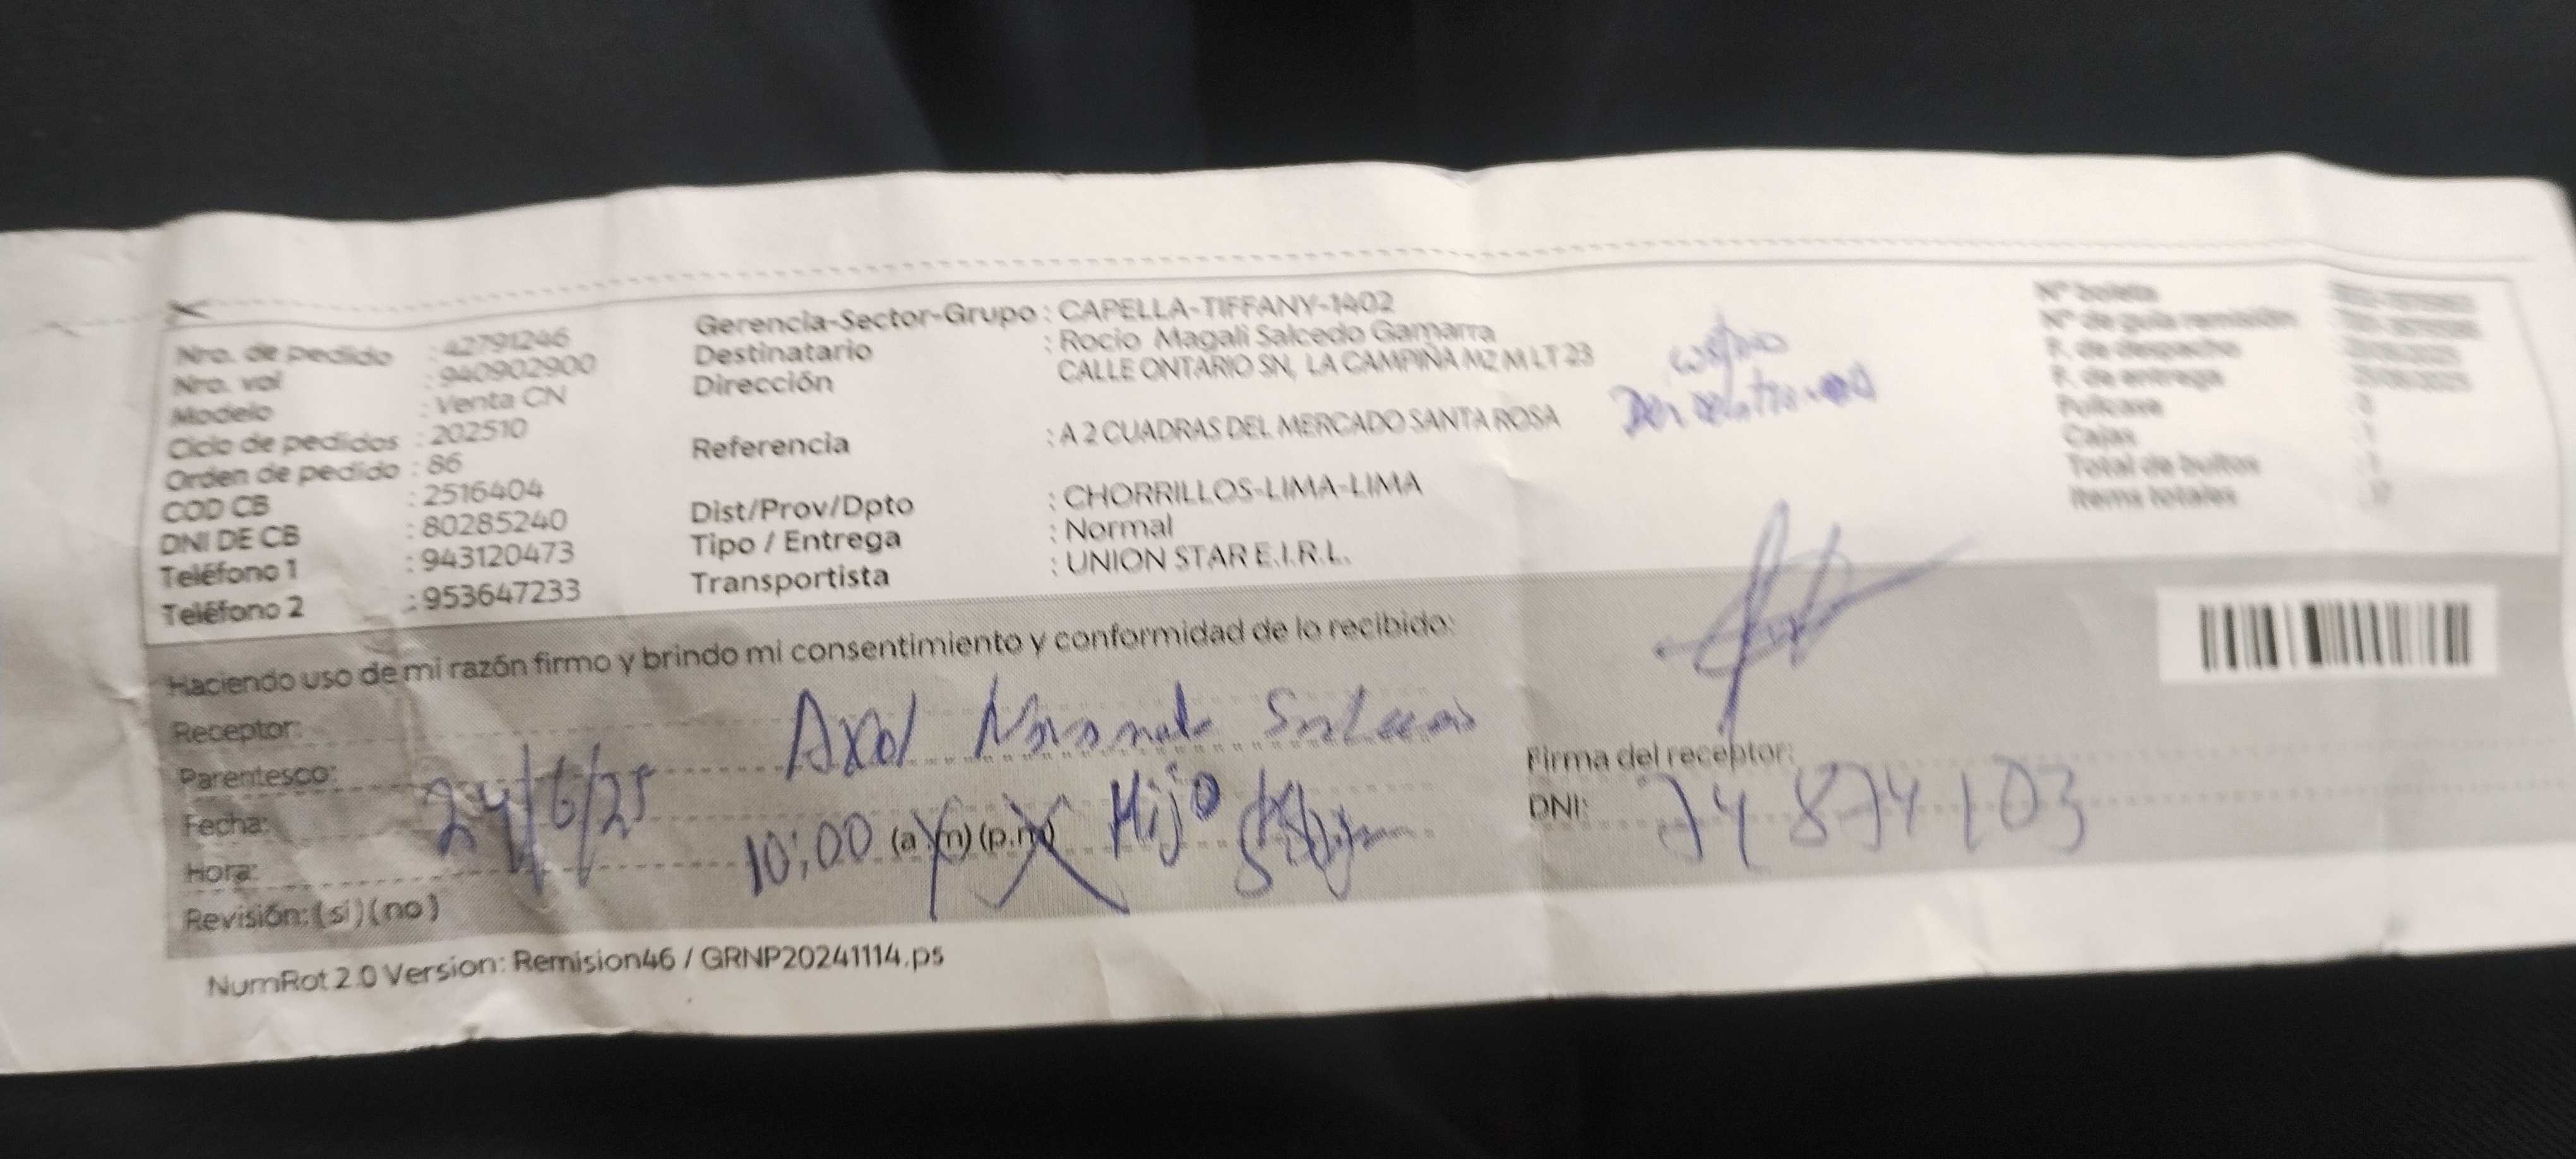 Nro. de pedido : 42791246
Nro. val : 940902900
Modelo : Venta CN
Ciclo de pedidos : 202510
Orden de pedido : 86
COD CB : 2516404
DNI DE CB : 80285240
Teléfono 1 : 943120473
Teléfono 2 : 953647233
Gerencia-Sector-Grupo : CAPELLA-TIFFANY-1402
Destinatario : Rocio Magali Salcedo Gamarra
Dirección : CALLE ONTARIO SN, LA CAMPIÑA MZ M LT 23
Referencia : A 2 CUADRAS DEL MERCADO SANTA ROSA
Dist/Prov/Dpto : CHORRILLOS-LIMA-LIMA
Tipo / Entrega : Normal
Transportista : UNION STAR E.I.R.L.
N° boleta
N° de guía remisión
F. de despacho
F. de entrega
Fullcaxa
Cajas : 1
Total de bultos : 1
Items totales
Haciendo uso de mi razón firmo y brindo mi consentimiento y conformidad de lo recibido:
Receptor: Axel
Parentesco: Hijo
Fecha: 24/6/25
Hora: 10:00 (a.m) (p.m)
Revisión: (si) (no)
Firma del receptor:
DNI: 74874103
NumRot 2.0 Version: Remision46 / GRNP20241114.ps